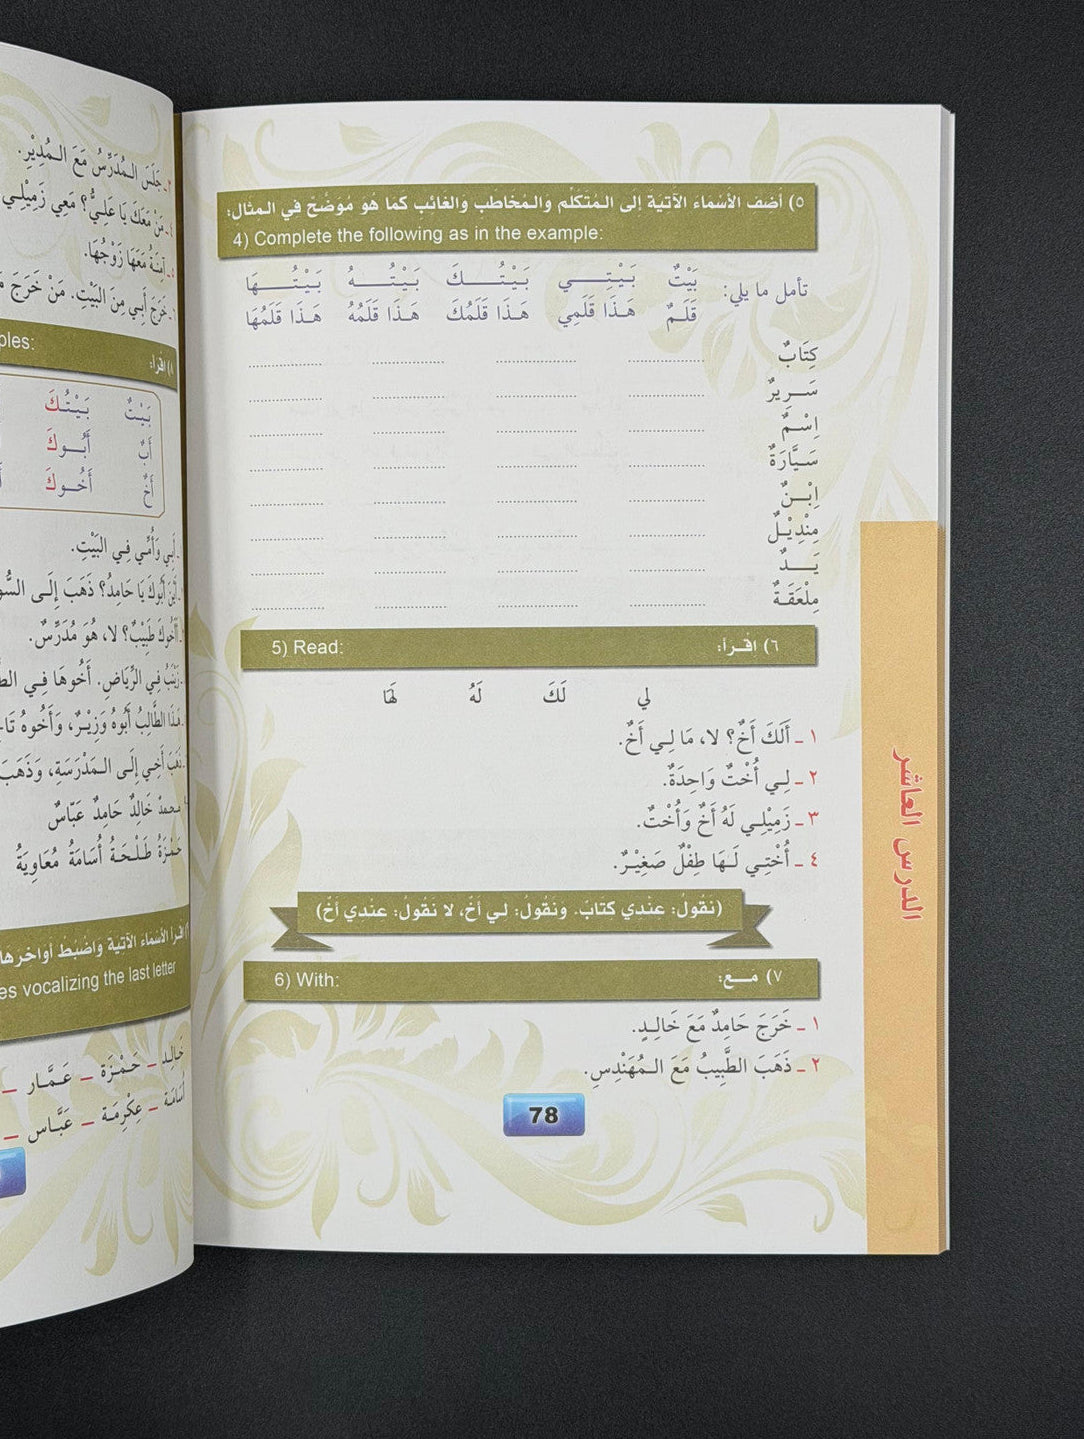 ٥) أضف الأسْماء الآتيَة إلى المُتَكلّم والمُخاطَب والغائب كَمَا هُو مُوَضَّحٌ فِي المثال:
4) Complete the following as in the example:
تأمل ما يلي: بَيْتٌ بَيْتِـــي بَيْتُــكَ بَيْتُــهُ بَيْتُــهَا
قَلَـمٌ هَـذَا قَلَمِي هَـذَا قَلَمُكَ هَـذَا قَلَمُهُ هَـذَا قَلَمُهَا
كِتَابٌ
سَــرِيرٌ
اِسْــمٌ
سَـيَّارَةٌ
اِبْــنٌ
مِنْدِيْـلٌ
يَـــدٌ
مِلْعَقَـةٌ
٦) اقْـرأ: 5) Read:
لي لَكَ لَهُ لَهَا
١ ـ أَلَكَ أَخٌ؟ لا، مَا لِـي أَخٌ.
٢ ـ لِـي أُخْتٌ وَاحِدَةٌ.
٣ ـ زَمِيْلِـي لَهُ أَخٌ وَأُخْتٌ.
٤ ـ أُخْتِـي لَـهَا طِفْلٌ صَغِيْـرٌ.
(نَقُولُ: عنْدي كتَابٌ. ونَقُولُ: لي أخٌ، لا نَقُولُ: عنْدي أخٌ)
٧) مــع: 6) With:
١ ـ خَرَجَ حَامِدٌ مَعَ خَالِـدٍ.
٢ ـ ذَهَبَ الطَّبِيبُ مَعَ الـمُهَنْدِسِ.
78
الدرس العاشر
جَلَسَ الـمُدَرِّسُ مَعَ الـمُدِيْرِ.
مَنْ مَعَكَ يَا عَلِـيُّ؟ مَعِي زَمِيْلِـي
آمِنَةُ مَعَهَا زَوْجُهَا.
خَرَجَ أَبِـي مِنَ البَيْتِ. مَنْ خَرَجَ
٨) اقْرأ:
بَيْتٌ بَيْتُـكَ
أَبٌ أَبُــوكَ
أَخٌ أَخُــوكَ
أَبِي وَأُمِّي فِـي البَيْتِ.
أَيْنَ أَبُوكَ يَا حَامِدُ؟ ذَهَبَ إِلَـى
أَأَخُوكَ طَبِيْبٌ؟ لا، هُوَ مُدَرِّسٌ.
زَيْنَبُ فِـي الرِّيَاضِ. أَخُوهَا فِـي
هَـذَا الطَّالِبُ أَبُوهُ وَزِيْـرٌ، وَأَخُوهُ
ذَهَبَ أَخِي إِلَـى الـمَدْرَسَةِ، وَذَهَبَ
مُحمدٌ خَالِدٌ حَامِدٌ عَبَّاسٌ
حَمْزَةُ طَلْـحَةُ أُسَامَةُ مُعَاوِيَةُ
اقرأ الأسْمَاءَ الآتِيَةَ وَاضْبُطْ أَوَاخِرَهَا
vocalizing the last letter
خَالِد ـ حَمْـزَة ـ عَـمَّـار ـ
أُسَامَة ـ عِكْرِمَـة ـ عَبَّـاس ـ